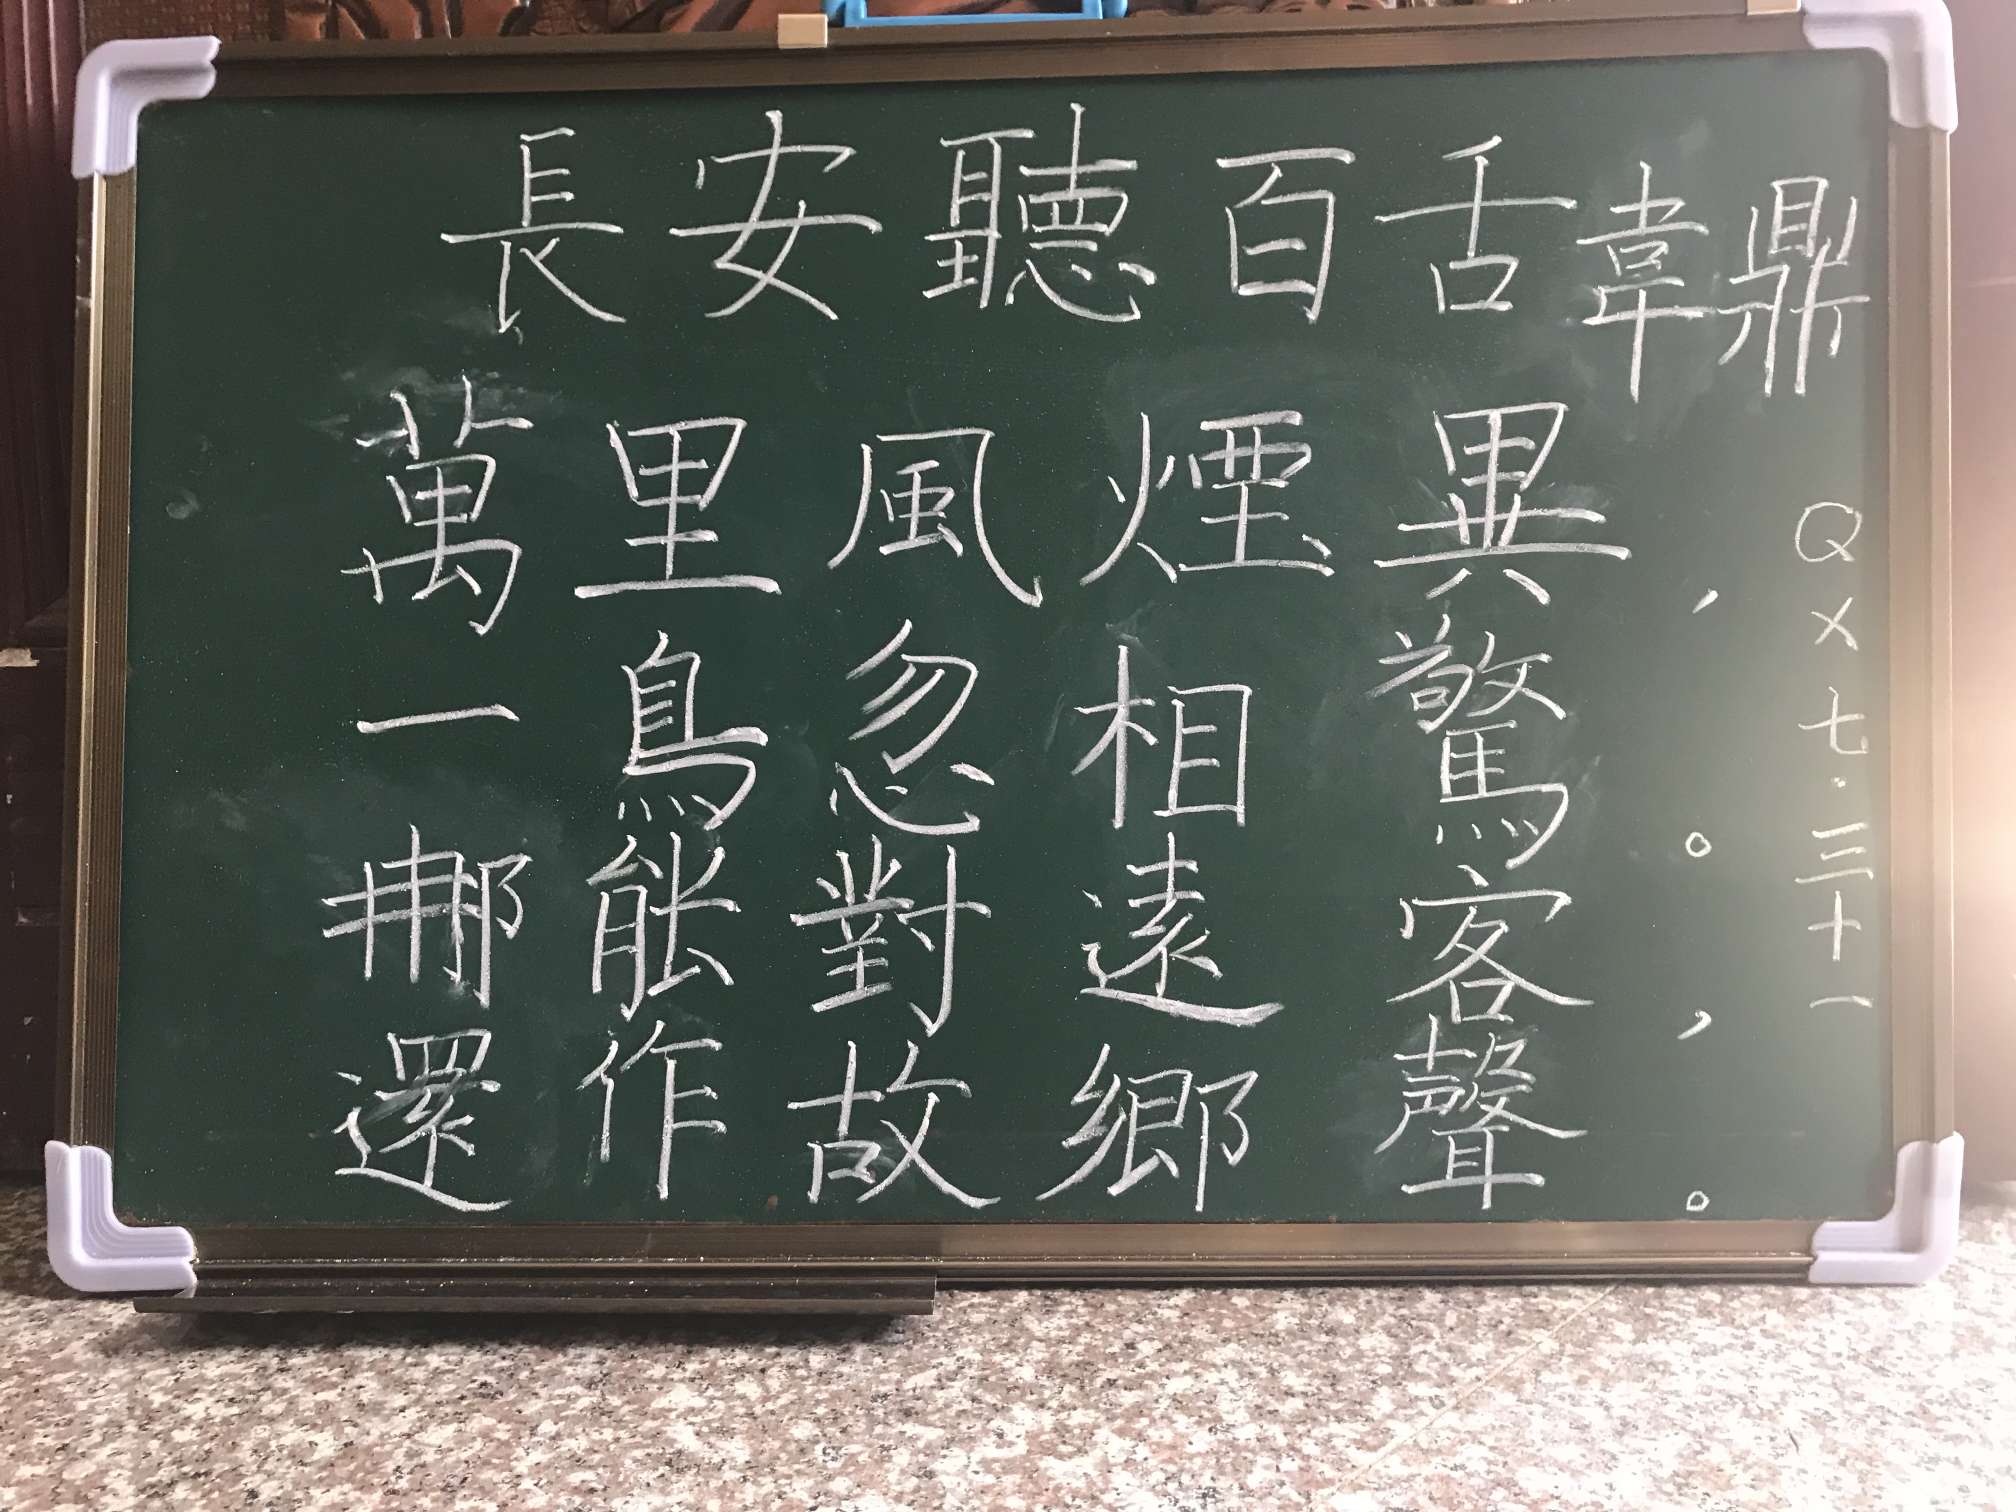 長安聽百舌韋鼎
萬里風煙異，
一鳥忽相驚。
那能對遠客，
還作故鄉聲。
QX七.三十一